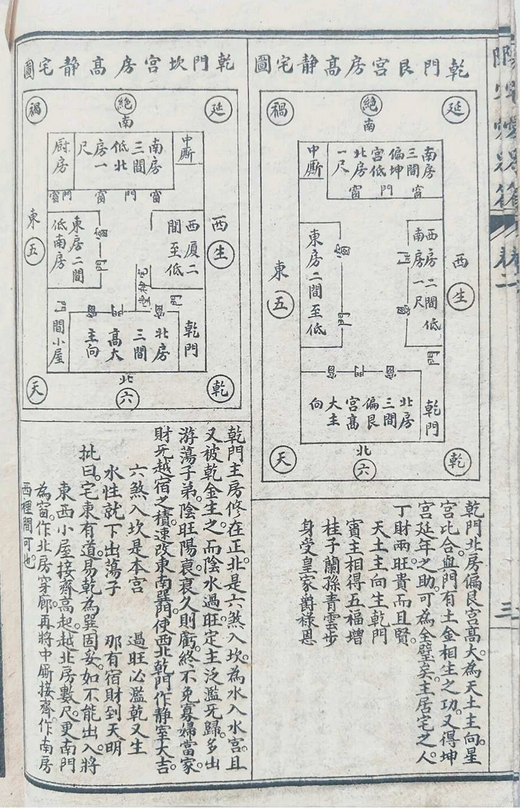 乾門艮宮房高静宅圖
延
絶
禍
南
南房
三間
偏坤
宮低
北房
一尺
中厠
窗
門
窗
西房二間低
南房一尺
東房二間至低
西
生
東
五
乾門
北房
三間
偏艮
宮高
大主
向
北
六
乾
天
乾門北房偏艮宮高大為天土主向星
宮比合與門有土金相生之功又得坤
宮延年之助可為全璧矣主居宅之人
丁財兩旺貴而且賢
天土主向生乾門
賓主相得五福增
桂子蘭孫青雲步
身受皇家爵禄恩
乾門坎宮房高静宅圖
延
絶
禍
南
中厠
南房
三間
低北
房一
尺
厨房
窗
門
窗
門
西厦二
間至低
東房二間
低南房
西
生
東
五
乾門
北房
三間
高大
主向
間小屋
北
六
乾
天
乾門主房修在正北是六煞入坎為水入水宮且
又被乾金主之而陰水過旺定主泛濫无歸多出
游蕩子弟陰旺陽衰衰久則虧終不免寡婦當家
財无越宿之積速改東南巽門使西北乾門作静室大吉
六煞入坎是本宮 過旺必濫乾又生
水性就下出蕩子 那有宿財到天明
批曰宅東有道易乾為巽固妥如不能出入將
東西小屋接齊高起越北房數尺更南門
為窗作北房穿廊再將中厠接齊作南房
西裡間可也